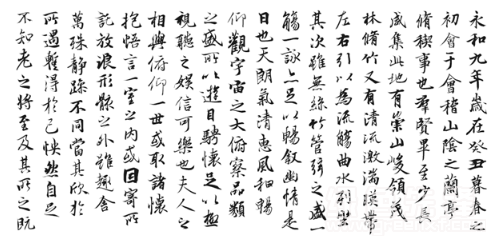 永和九年歲在癸丑暮春之
初會于會稽山陰之蘭亭
脩稧事也羣賢畢至少長
咸集此地有崇山峻領茂
林脩竹又有清流激湍暎帶
左右引以為流觴曲水列坐
其次雖無絲竹管弦之盛一
觴一詠亦足以暢叙幽情是
日也天朗氣清惠風和暢
仰觀宇宙之大俯察品類
之盛所以遊目騁懷足以極
視聽之娛信可樂也夫人之
相與俯仰一世或取諸懷
抱悟言一室之內或因寄所
託放浪形骸之外雖趣舍
萬殊靜躁不同當其欣於
所遇暫得於己怏然自足
不知老之將至及其所之既